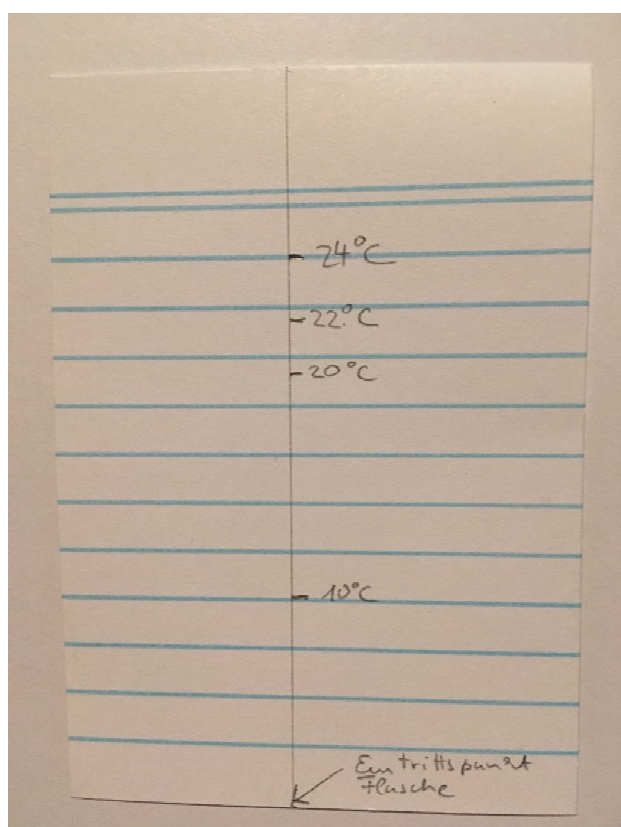 24°C
22°C
20°C
10°C
Eintrittspunkt
Flasche